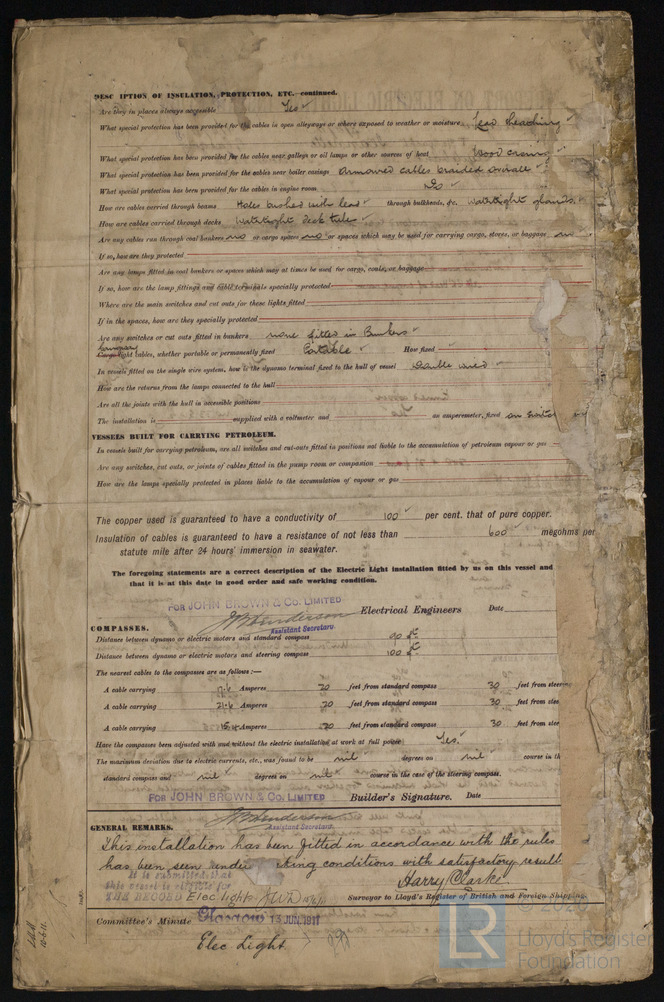 DESC IPTION OF INSULATION, PROTECTION, ETC.—continued.
Are they in places always accessible Yes
What special protection has been provided for the cables in open alleyways or where exposed to weather or moisture Lead Sheathing
What special protection has been provided for the cables near galleys or oil lamps or other sources of heat Wood casing
What special protection has been provided for the cables near boiler casings Armoured cables braided overall
What special protection has been provided for the cables in engine room Do
How are cables carried through beams Holes bushed with lead through bulkheads, &c. Watertight glands.
How are cables carried through decks Watertight deck tubes
Are any cables run through coal bunkers no or cargo spaces no or spaces which may be used for carrying cargo, stores, or baggage no
If so, how are they protected
Are any lamps fitted in coal bunkers or spaces which may at times be used for cargo, coals, or baggage
If so, how are the lamp fittings and cable terminals specially protected
Where are the main switches and cut outs for these lights fitted
If in the spaces, how are they specially protected
Are any switches or cut outs fitted in bunkers none fitted in Bunkers
Cargo light cables, whether portable or permanently fixed Portable How fixed
In vessels fitted on the single wire system, how is the dynamo terminal fixed to the hull of vessel Double wired
How are the returns from the lamps connected to the hull
Are all the joints with the hull in accessible positions
The installation is supplied with a voltmeter and an amperemeter, fixed on switch
VESSELS BUILT FOR CARRYING PETROLEUM.
In vessels built for carrying petroleum, are all switches and cut-outs fitted in positions not liable to the accumulation of petroleum vapour or gas
Are any switches, cut outs, or joints of cables fitted in the pump room or companion
How are the lamps specially protected in places liable to the accumulation of vapour or gas
The copper used is guaranteed to have a conductivity of 100 per cent. that of pure copper.
Insulation of cables is guaranteed to have a resistance of not less than 600 megohms per
statute mile after 24 hours' immersion in seawater.
The foregoing statements are a correct description of the Electric Light installation fitted by us on this vessel and
that it is at this date in good order and safe working condition.
FOR JOHN BROWN & CO. LIMITED
Henderson Electrical Engineers Date
Assistant Secretary
COMPASSES.
Distance between dynamo or electric motors and standard compass 90 ft
Distance between dynamo or electric motors and steering compass 100 ft
The nearest cables to the compasses are as follows:—
A cable carrying 17.6 Amperes 20 feet from standard compass 30 feet from steering
A cable carrying 21.6 Amperes 20 feet from standard compass 30 feet from stee
A cable carrying 15.4 Amperes 20 feet from standard compass 30 feet from stee
Have the compasses been adjusted with and without the electric installation at work at full power Yes.
The maximum deviation due to electric currents, etc., was found to be nil degrees on nil course in th
standard compass and nil degrees on nil course in the case of the steering compass.
FOR JOHN BROWN & CO. LIMITED Builder's Signature. Date
Henderson
Assistant Secretary
GENERAL REMARKS.
This installation has been fitted in accordance with the rules
has been seen under king conditions with satisfactory result
It is submitted that
this vessel is eligible for
THE RECORD Elec light
Harry Clarke
Surveyor to Lloyd's Register of British and Foreign Shipping.
Committee's Minute Glasgow 13 JUN. 1911
Elec Light.
LR
© 2020
Lloyd's Register
Foundation